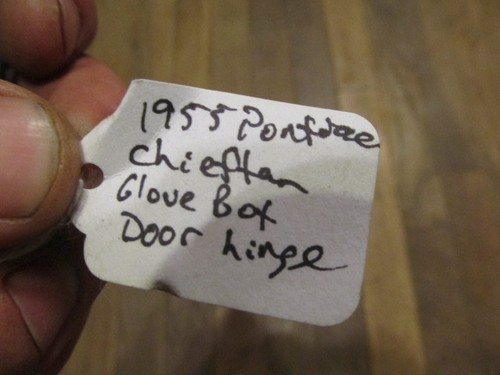 1955 Pontiac
Chieftan
Glove Box
Door hinge